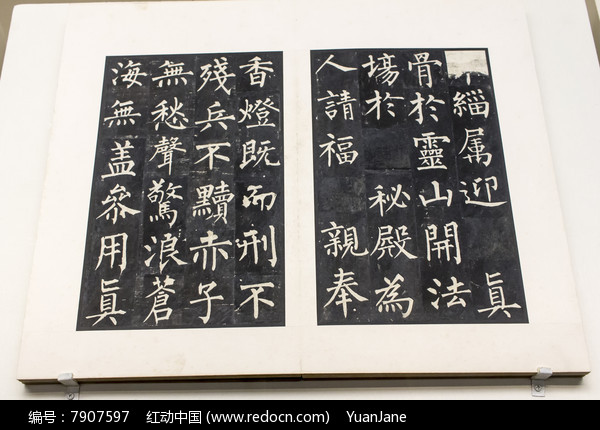 緇属迎 眞
骨於靈山開法
場於 秘殿為
人請福 親奉
香燈既而刑不
殘兵不黷赤子
無愁聲驚浪蒼
海無盖叅用眞
编号：7907597 红动中国 (www.redocn.com) YuanJane